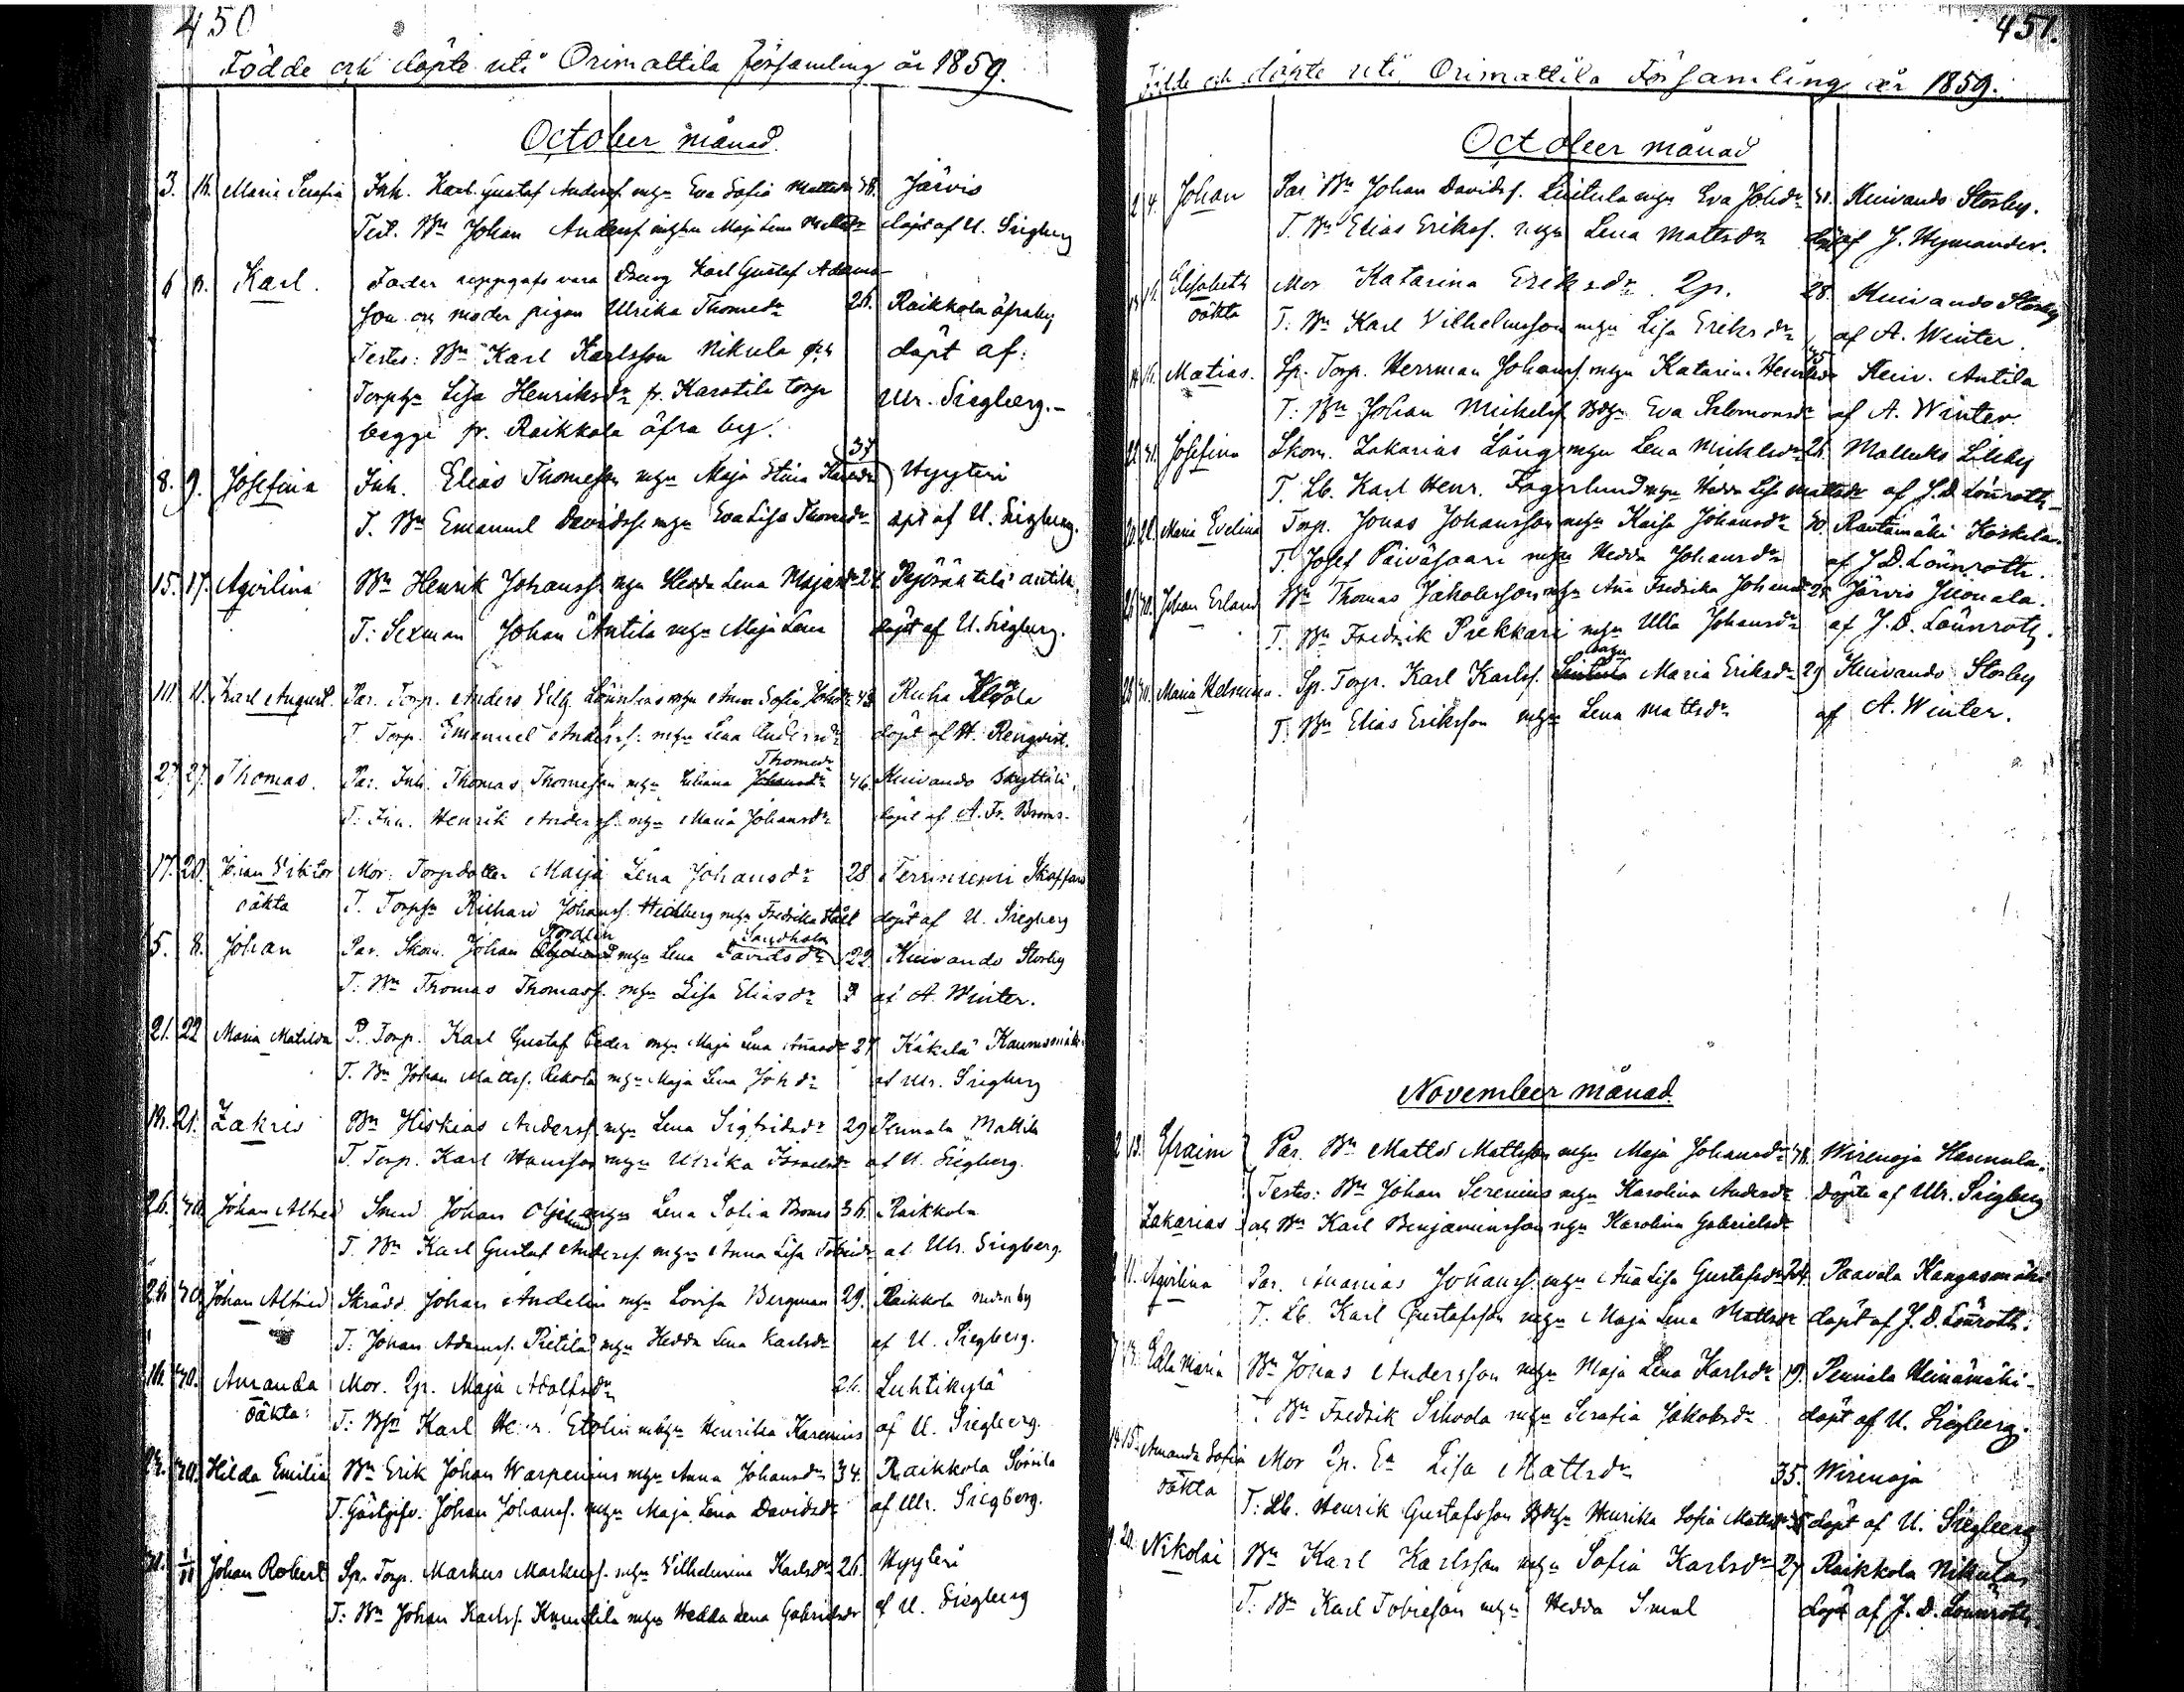 450
Födde och döpte uti Orimattila församling år 1859.
October månad.
3. 16. Maria Serafia Inh. Karl Gustaf Andersf. mhu Eva Sofia Mattsdr 38. Järvis
Test. Bn Johan Andersf. mhu Maja Lena Mattsdr döpt af U. Siegberg
6 8. Karl. Fader uppgafs vara Dreng Karl Gustaf Adams-
son och moder pigan Ulrika Thomasdr 26. Raikkola öfraby
Testes: Bn Karl Karlsson Nikula och döpt af:
Torphu Lisa Henriksdr fr. Karstila torp Ulr. Siegberg.-
begge fr. Raikkola öfra by.
37
8. 9. Josefina Inh. Elias Thomasson mhu Maja Stina Hyyteri
T. Bn Emanuel Davidsf. mhu Eva Lisa Thomasdr döpt af U. Siegberg.
15. 17. Aqvilina Bn Henrik Johansf. mhu Hedda Lena Majasdr 24. antila
T: Sexman Johan Antila mhu Maja Lena döpt af U. Siegberg.
Karl August. Par. Torp. Anders Vilh. mhu Anna Sofia Johdr 43 Ruha
T. Torp. Emanuel Andersf. mhu Lena Andersdr döpt af H. Renqvist.
Thomasdr
27 27. Thomas. Par. Inh. Thomas Thomasson mhu Juliana Johansdr 46. Kuivando Skyttälä,
T. Inh. Henrik Andersf. mhu Maria Johansdr döpt af A. Fr. Broms.
17. 20. Johan Viktor Mor. Torpdotter Maija Lena Johansdr 28 Terriniemi Skaffars
oäkta T. Torpfn Richard Johansf. Hedberg mhu Fredrika Ståhl döpt af U. Siegberg
Nordlin Sandholm
5. 8. Johan Par. Skom. Johan mhu Lena Davidsdr 22. Kuivando Storby
T. Bn Thomas Thomasf. mhu Lisa Eliasdr af A. Winter.
21. 22 Maria Matilda P. Torp. Karl Gustaf Ceder mhu Maja Lena 27 Käkelä
T. Bn Johan Mattsf. Rekola mhu Maja Lena Johdr af Ulr. Siegberg
18. 21. Zakris Bn Hiskias Andersf. mhu Lena Sigfridsdr 29 Pennala Mattila
T. Torp. Karl Hansson mhu Ulrika Israelsdr af U. Siegberg.
26. 30. Johan Alfred Smed Johan mhu Lena Sofia Broms 36. Raikkola
T. Bn Karl Gustaf Andersf. mhu Anna Lisa Tobiasdr af Ulr. Siegberg.
26 30. Johan Alfred Skrädd. Johan Andelin mhu Lovisa Bergman 29. Raikkola nedraby
T. Johan Adamsf. Pietilä mhu Hedda Lena Karlsdr af U. Siegberg.
16. 30. Amanda Mor. Qp. Maja Adolfsdr 26. Luhtikylä
oäkta: T: Bfn Karl Henr. Etolin mhu Henrika Karenius af U. Siegberg.
30. Hilda Emilia Bn Erik Johan Warpenius mhu Anna Johansdr 34. Raikkola Sorvila
T. Gästgifv. Johan Johansf. mhu Maja Lena Davidsdr af Ulr. Siegberg.
1/11 Johan Robert Sp. Torp. Markus Markusf. mhu Vilhelmina Karlsdr 26. Hyyteri
T: Bn Johan Karlsf. mhu Hedda Lena Gabrielsdr af U. Siegberg
451.
Födde och döpte uti Orimattila Församling år 1859.
October månad
2 4. Johan Par. Bn Johan Davidsf. Luitula mhu Eva Johdr 31. Kuivando Storby.
T. Bn Elias Eriksf. mhu Lena Mattsdr döpt af J. Hymander.
Elisabeth Mor Katarina Eriksdr Qp. 28. Kuivando Storby
oäkta T: Bn Karl Vilhelmsson mhu Lisa Eriksdr af A. Winter.
Matias. Sp. Torp. Herrman Johansf. mhu Katarina Henriksdr Kuiv. Antila
T: Bn Johan Mickelsf. Bdhu Eva Salomonsdr af A. Winter.
22 31. Josefina Skom. Zakarias Lång mhu Lena Mickelsdr 26. Mallusks Lilby
T. Lb. Karl Henr. Fagerlund mhu Hedda Lisa Mattsdr af J. D. Lönroth.
Maria Evelina Torp. Jonas Johansson mhu Kaisa Johansdr 30. Rantamäki Koskela
T. Josef Päiväsaari mhu Hedda Johansdr af J. D. Lönnroth.
30. Johan Erland Bn Thomas Jakobsson mhu Ana Fredrika Johansdr 24 Järvis
T. Bn Fredrik Prekkari mhu Ulla Johansdr af J. D. Lönnroth.
30. Maria Helmina. Sp. Torp. Karl Karlsf. Maria Eriksdr 29 Kuivando Storby
T. Bn Elias Eriksson mhu Lena Mattsdr af A. Winter.
November månad.
13. Efraim Par. Bn Matts Mattsson mhu Maja Johansdr 38. Wirenoja Hannula.
Testes: Bn Johan Serenius mhu Karolina Andersdr Döpte af Ulr. Siegberg
Zakarias och Bn Karl Benjaminsson mhu Karolina Gabrielsdr
11. Aqvilina Par. Ananias Johansf. mhu Ana Lisa Gustafsdr 24. Paavola Kangasmäki
T. Lb. Karl Gustafsson mhu Maja Lena Mattsdr döpt af J. D. Lönroth.
7 13. Edla Maria Bn Jonas Andersson mhu Maja Lena Karlsdr 19. Pennala Heinämäki-
T Bn Fredrik Silvola mhu Serafia Jakobsdr döpt af U. Siegberg.
14 15. Amanda Sofia Mor Qp. En Lisa Mattsdr 35. Wirenoja
oäkta T: Lb. Henrik Gustafsson Bdhu Henrika Sofia Mattsdr döpt af U. Siegberg
20. Nikolai Bn Karl Karlsson mhu Sofia Karlsdr 27 Raikkola Nikula
T: Bn Karl Tobiesson mhu Hedda Smal döpt af J. D. Lönnroth.